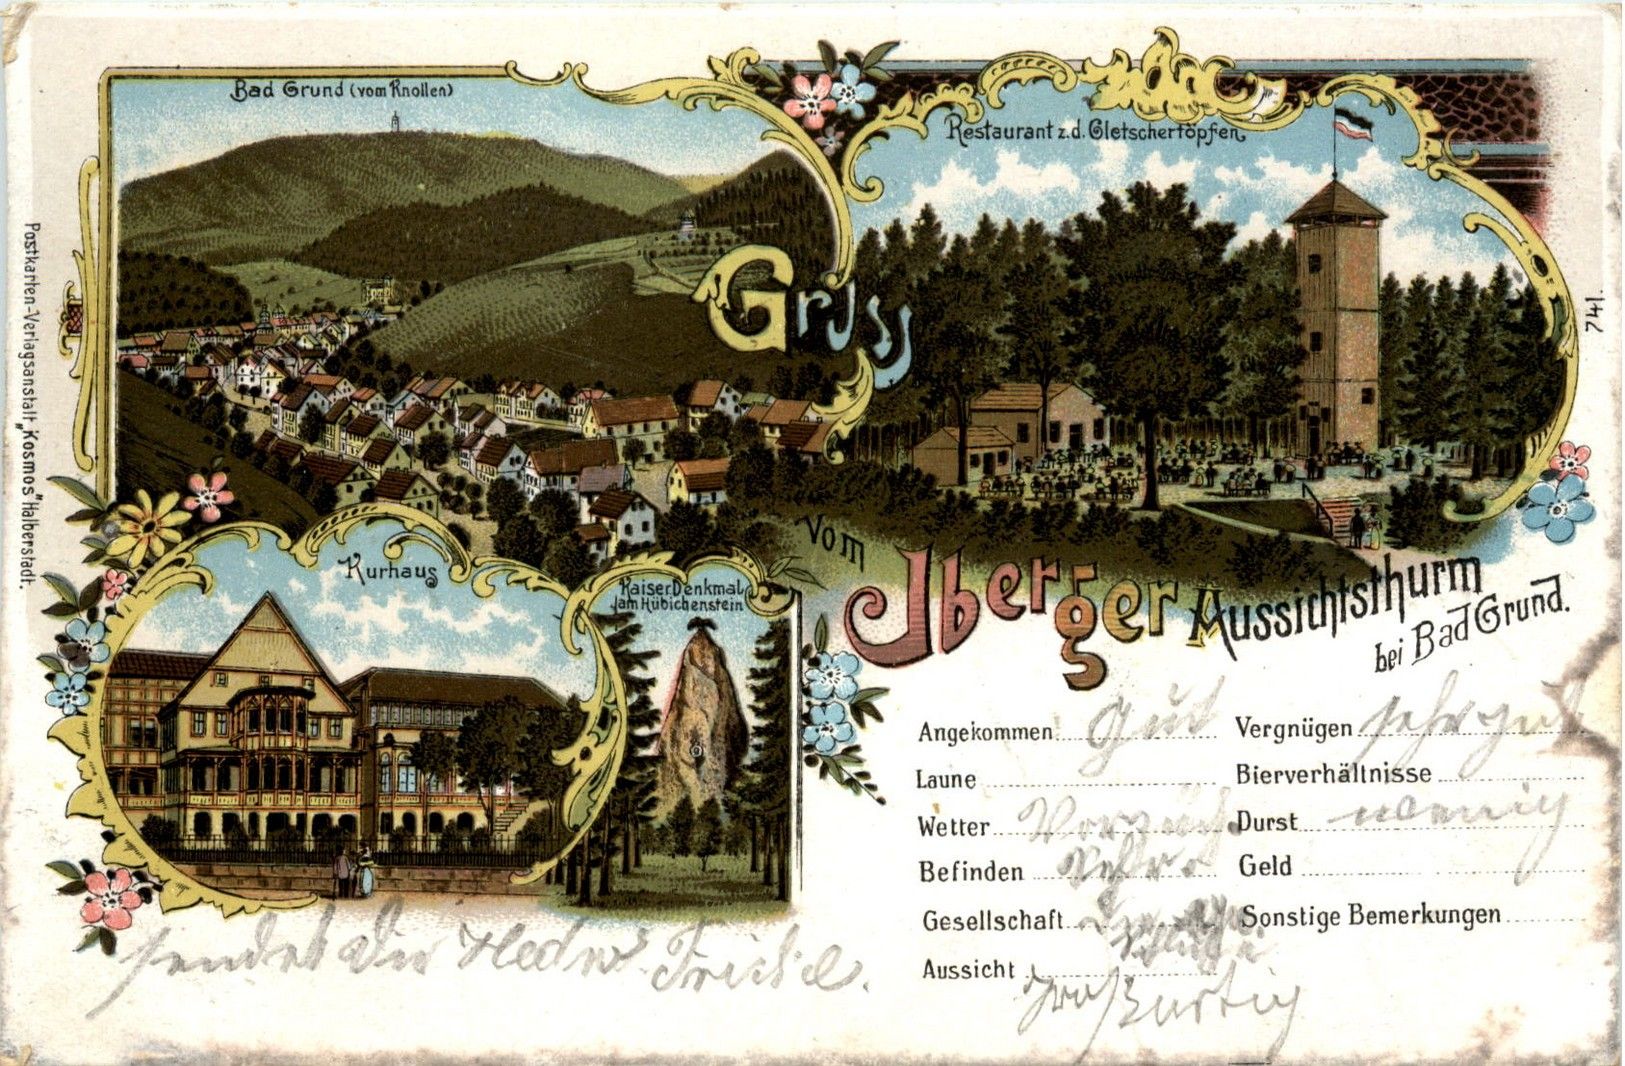 Bad Grund (vom Knollen)
Restaurant z. d. Gletschertöpfen
Gruss
vom
Iberger Aussichtsthurm
bei Bad Grund.
Kurhaus
Kaiser Denkmal
am Hübichenstein
Angekommen gut
Vergnügen sehr gut
Laune
Bierverhältnisse
Wetter
Durst wenig
Befinden
Geld
Gesellschaft
Sonstige Bemerkungen
Aussicht großartig
sendet
Postkarten-Verlagsanstalt "Kosmos" Halberstadt.
741